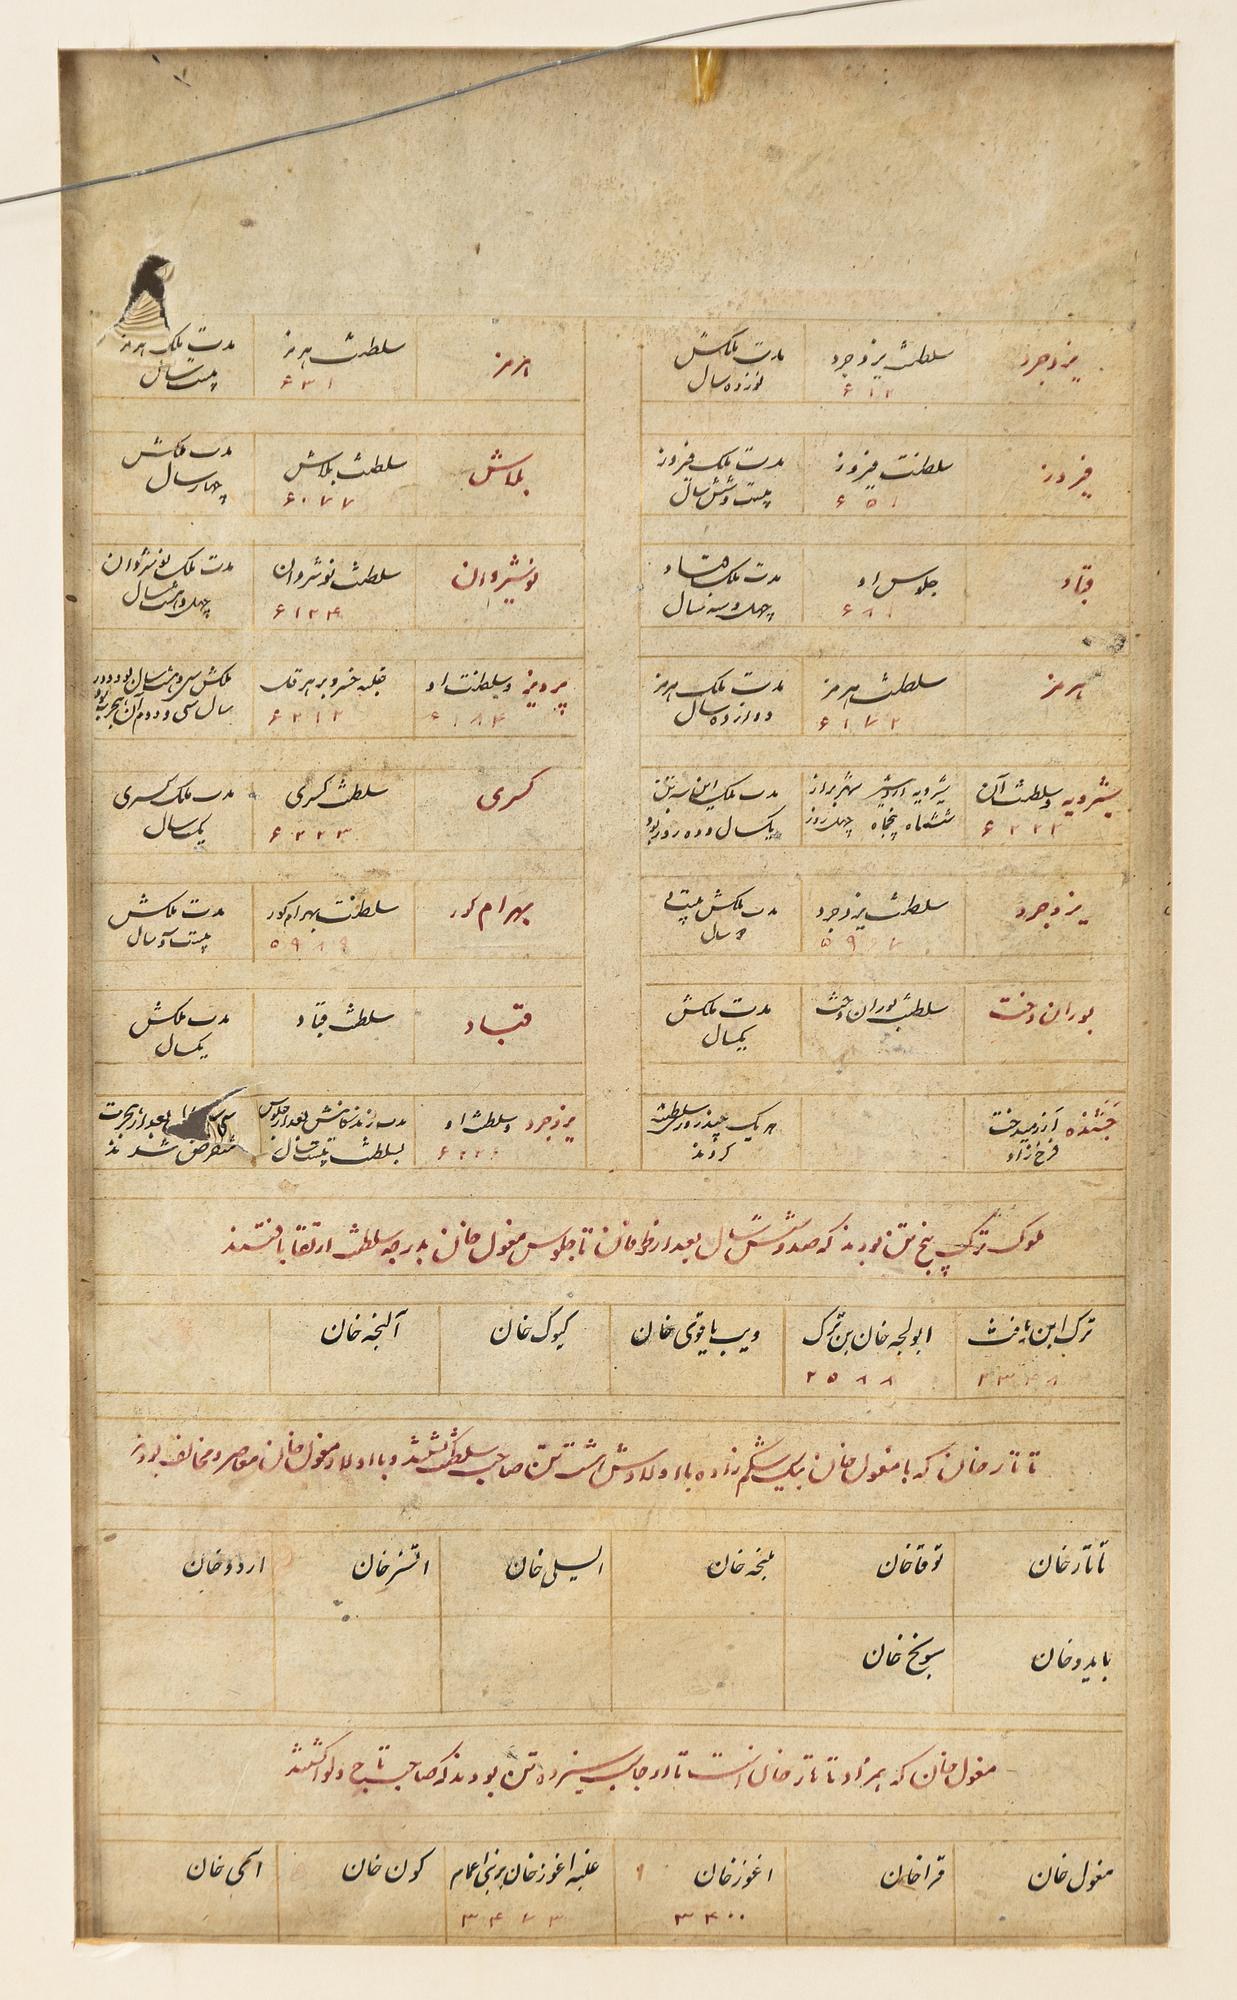 یزدجرد سلطنت یزدجرد مدت ملکش هرمز سلطنت هرمز مدت ملک هرمز
۶۱۲ نوزده سال ۶۳۱ بیست سال
فیروز سلطنت فیروز مدت ملک فیروز بلاش سلطنت بلاش مدت ملکش
۶۵۱ بیست و شش سال ۶۰۷۷ چهار سال
قباد جلوس او مدت ملک قباد نوشیروان سلطنت نوشروان مدت ملک نوشروان
۶۸۱ چهل و سه سال ۶۱۲۴ چهل و هشت سال
هرمز سلطنت هرمز مدت ملک هرمز پرویز و سلطنت او غلبه خسرو بر هرقل ملکش سی و هشت سال بود و در
۶۱۷۲ دوازده سال ۶۱۸۴ ۶۲۱۲ سال سی و دوم آن هجرت بود
شیرویه و سلطنت آن شیرویه اردشیر شهربراز مدت ملک این سه تن کسری سلطنت کسری مدت ملک کسری
۶۲۲۲ ششماه پنجاه چهل روز یکسال و ده روز بود ۶۲۲۳ یکسال
یزدجرد سلطنت یزدجرد مدت ملکش بیست بهرام کور سلطنت بهرام کور مدت ملکش
سال ۵۹۸۹ بیست سال
بوران دخت سلطنت بوران دخت مدت ملکش قباد سلطنت قباد مدت ملکش
یکسال یکسال
جشنده آزرمیدخت هر یک چند روز سلطنت یزدجرد و سلطنت او مدت زندکانیش بعد از جلوس بعد از هجرت
فرخ زاد کردند بسلطنت بیست سال منقرض شدند
ملوک ترک پنج تن بودند که صد و شش سال بعد از تا جلوس مغول خان بدرجه سلطنت ارتقا یافتند
ترک ابن یافث ابولجه خان بن ترک دیب یاقوی خان کیوک خان آلنجه خان
۲۵۸۸
تاتار خان که با مغول خان بیک شکم زاده با اولادش هشت تن صاحب سلطنت شدند و با اولاد مغول خان معاصر و مخالف بودند
تاتار خان توقا خان بلنجه خان ایسلی خان اتسز خان اردو خان
بایدو خان سونج خان
مغول خان که همزاد تاتار خان است تا نه تن بودند که صاحب تاج و لوا کشتند
مغول خان قرا خان اغوز خان غلبه اغوز خان بر بنی اعمام کون خان آی خان
۳۴۰۰ ۳۴۷۳